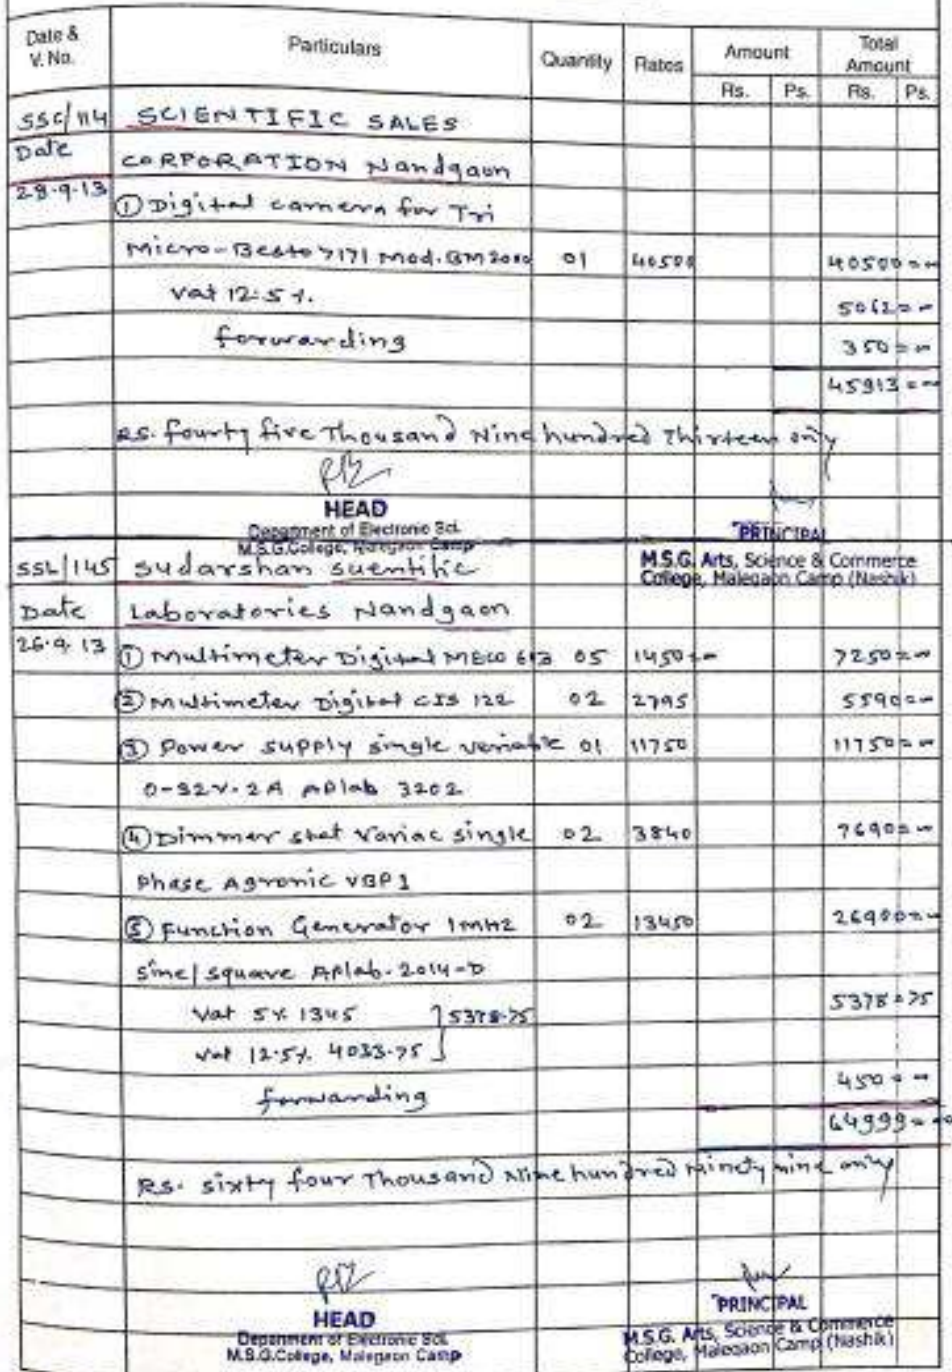 Date & V. No. Particulars Quantity Rates Amount Total Amount
Rs. Ps. Rs. Ps.
SSC/114 SCIENTIFIC SALES
Date CORPORATION Nandgaon
28.9.13 ① Digital camera for Tri
Micro-Besto 7171 Mod. BM2000 01 40500 40500=00
Vat 12.5%. 5062=00
forwarding 350=00
45913=00
RS. fourty five Thousand Nine hundred Thirteen only
HEAD
Department of Electronic Sci.
M.S.G.College, Malegaon Camp
PRINCIPAL
M.S.G. Arts, Science & Commerce
College, Malegaon Camp (Nashik)
SSL/145 Sudarshan Scientific
Date Laboratories Nandgaon
26.9.13 ① Multimeter Digital MECO 603 05 1450=00 7250=00
② Multimeter Digital CIS 122 02 2795 5590=00
③ Power supply single variable 01 11750 11750=00
0-32V-2A APlab 3202
④ Dimmer stat Variac single 02 3840 7690=00
Phase Agronic VBP1
⑤ Function Generator 1MHz 02 13450 26900=00
Sine/square APlab-2014-D
Vat 5% 1345 5378-75 5378=75
Vat 12.5%. 4033-75
forwarding 450=00
64999=00
RS. sixty four Thousand Nine hundred ninety nine only
HEAD
Department of Electronic Sci.
M.S.G.College, Malegaon Camp
PRINCIPAL
M.S.G. Arts, Science & Commerce
College, Malegaon Camp (Nashik)